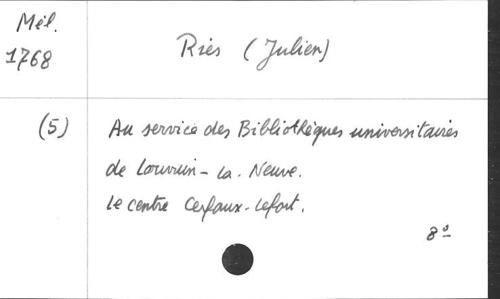 Mél.
1768
Riès (Julien)
(5)
Au service des Bibliothèques universitaires
de Louvain-la-Neuve.
Le centre Cerfaux-Lefort.
8°